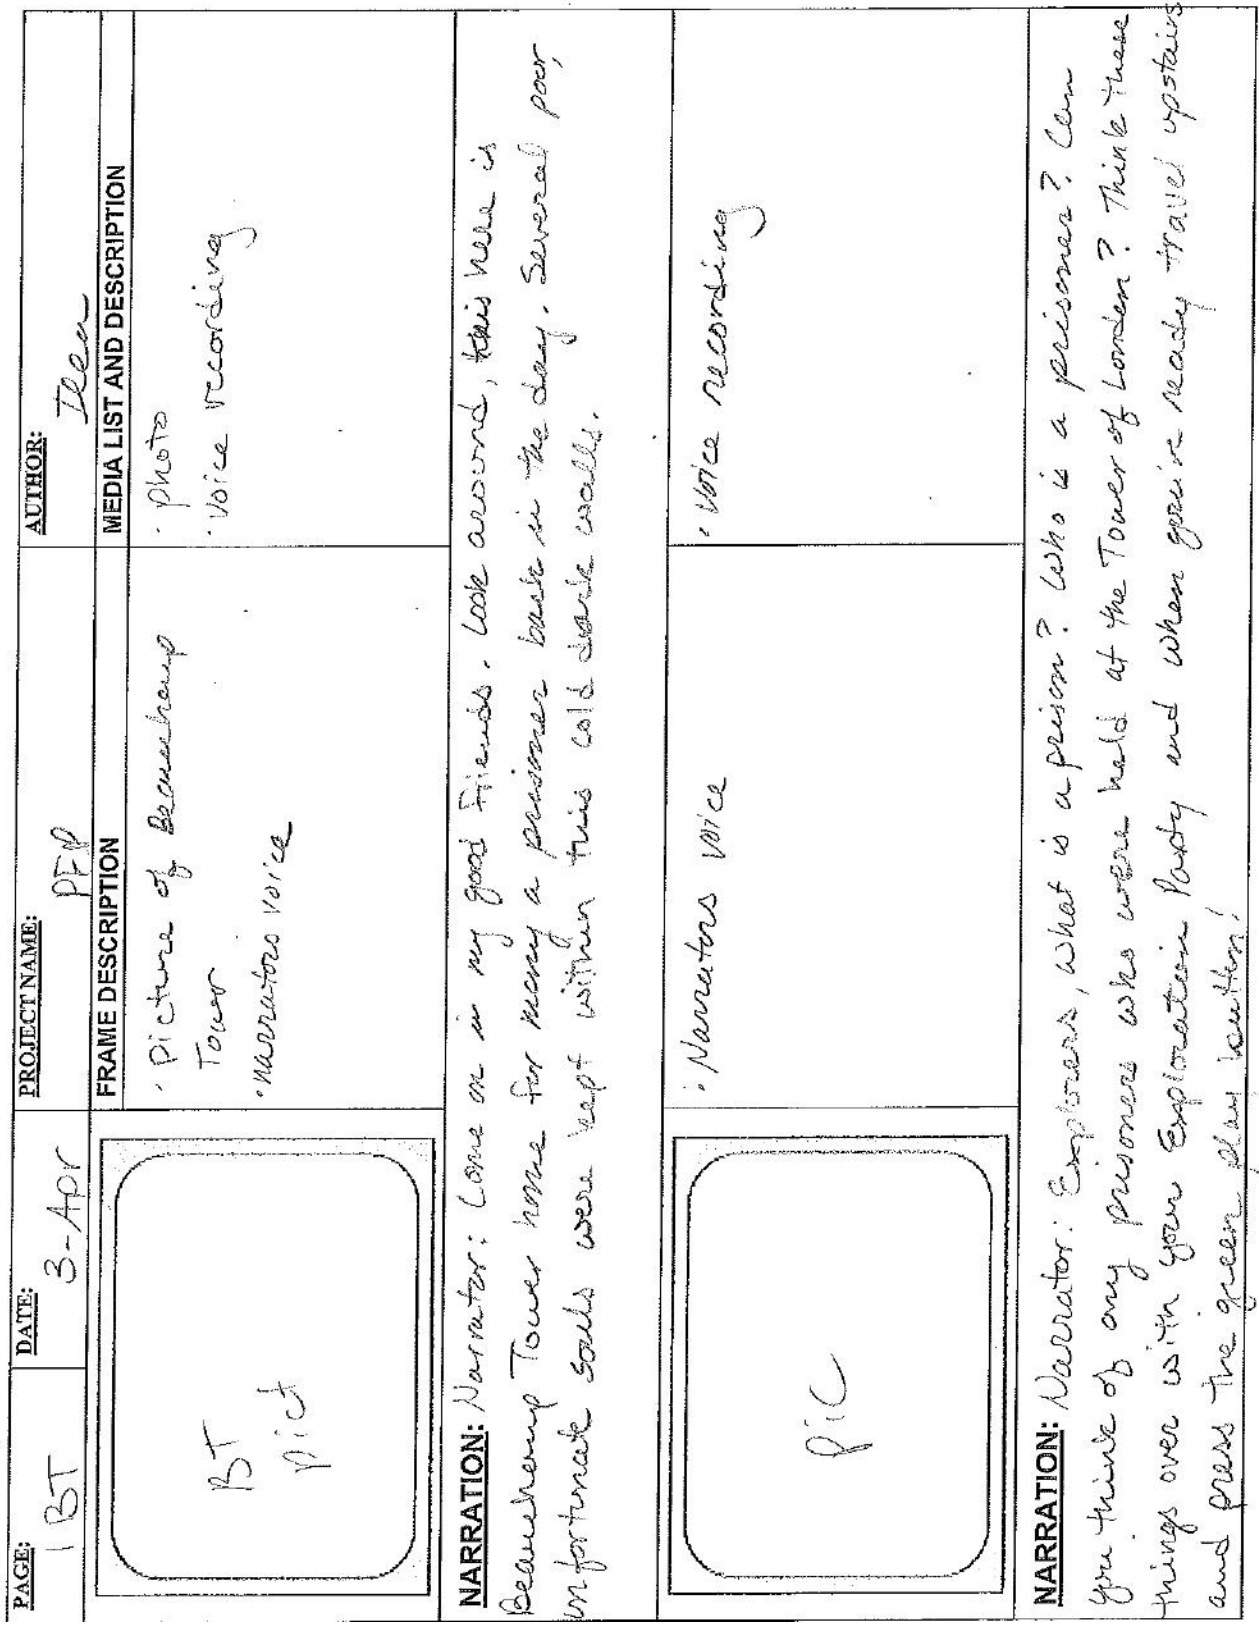 PAGE: 1 BT DATE: 3-Apr PROJECT NAME: PFP AUTHOR: Ilea
FRAME DESCRIPTION MEDIA LIST AND DESCRIPTION
BT
pict
· Picture of Beauchamp
Tower
· narrators voice
· photo
· voice recording
NARRATION: Narrator: Come on in my good friends. Look around, this here is
Beauchamp Tower home for many a prisoner back in the day. Several poor,
unfortunate souls were kept within this cold dark walls.
pic
· Narrators voice
· voice recording
NARRATION: Narrator: Explorers, what is a prison? Who is a prisoner? Can
you think of any prisoners who were held at the Tower of London? Think these
things over with your Exploration Party and when you're ready travel upstairs
and press the green play button!